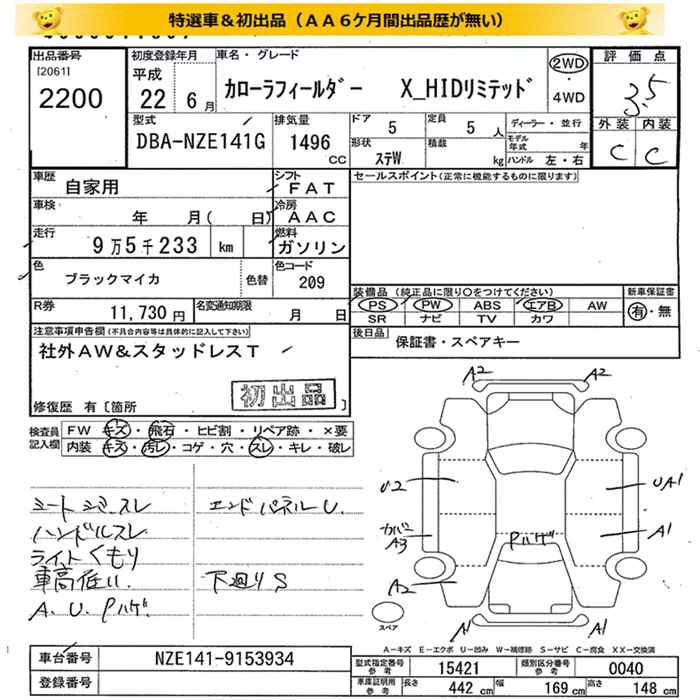 特選車＆初出品（ＡＡ６ケ月間出品歴が無い）
出品番号
[2061]
2200
初度登録年月
平成
22年 6月
車名・グレード
カローラフィールダー X_HIDリミテッド
2WD
・
4WD
評価点
3.5
外装 内装
C C
型式
DBA-NZE141G
排気量
1496
CC
ドア
5
定員
5人
形状
ステW
積載
kg
ディーラー・並行
モデル年式 年
ハンドル 左・右
車歴
自家用
シフト
FAT
車検
年 月( 日)
冷房
AAC
走行
9万5千233 km
燃料
ガソリン
色
ブラックマイカ
色替
色コード
209
R券
11,730円
名変通知期限
月 日
セールスポイント(正常に機能するものに限ります)
装備品 (純正品に限り〇をつけてください)
PS PW ABS エアB AW
SR ナビ TV カワ
新車保証書
有・無
後日品
保証書・スペアキー
注意事項申告欄(不具合内容等は具体的に記入して下さい)
社外AW＆スタッドレスT
初出品
修復歴 有〔箇所 〕
検査員記入欄
FW キズ・飛石・ヒビ割・リペア跡・×要
内装 キズ・汚レ・コゲ・穴・スレ・キレ・破レ
シートシミスレ
ハンドルスレ
ライトくもり
車高低い.
A.U.Pハゲ.
エンドパネルU.
下廻りS
A2 A2
U2 UA1
カバー
A3
Pハゲ
A1
A2
A1 A1
スペア
A－キズ E－エクボ U－凹み W－補修跡 S－サビ C－腐食 XX－交換済
車台番号
NZE141-9153934
登録番号
型式指定番号
参考
15421
類別区分番号
参考
0040
車庫証明用
参考
長さ
442 cm
幅
169 cm
高さ
148 cm